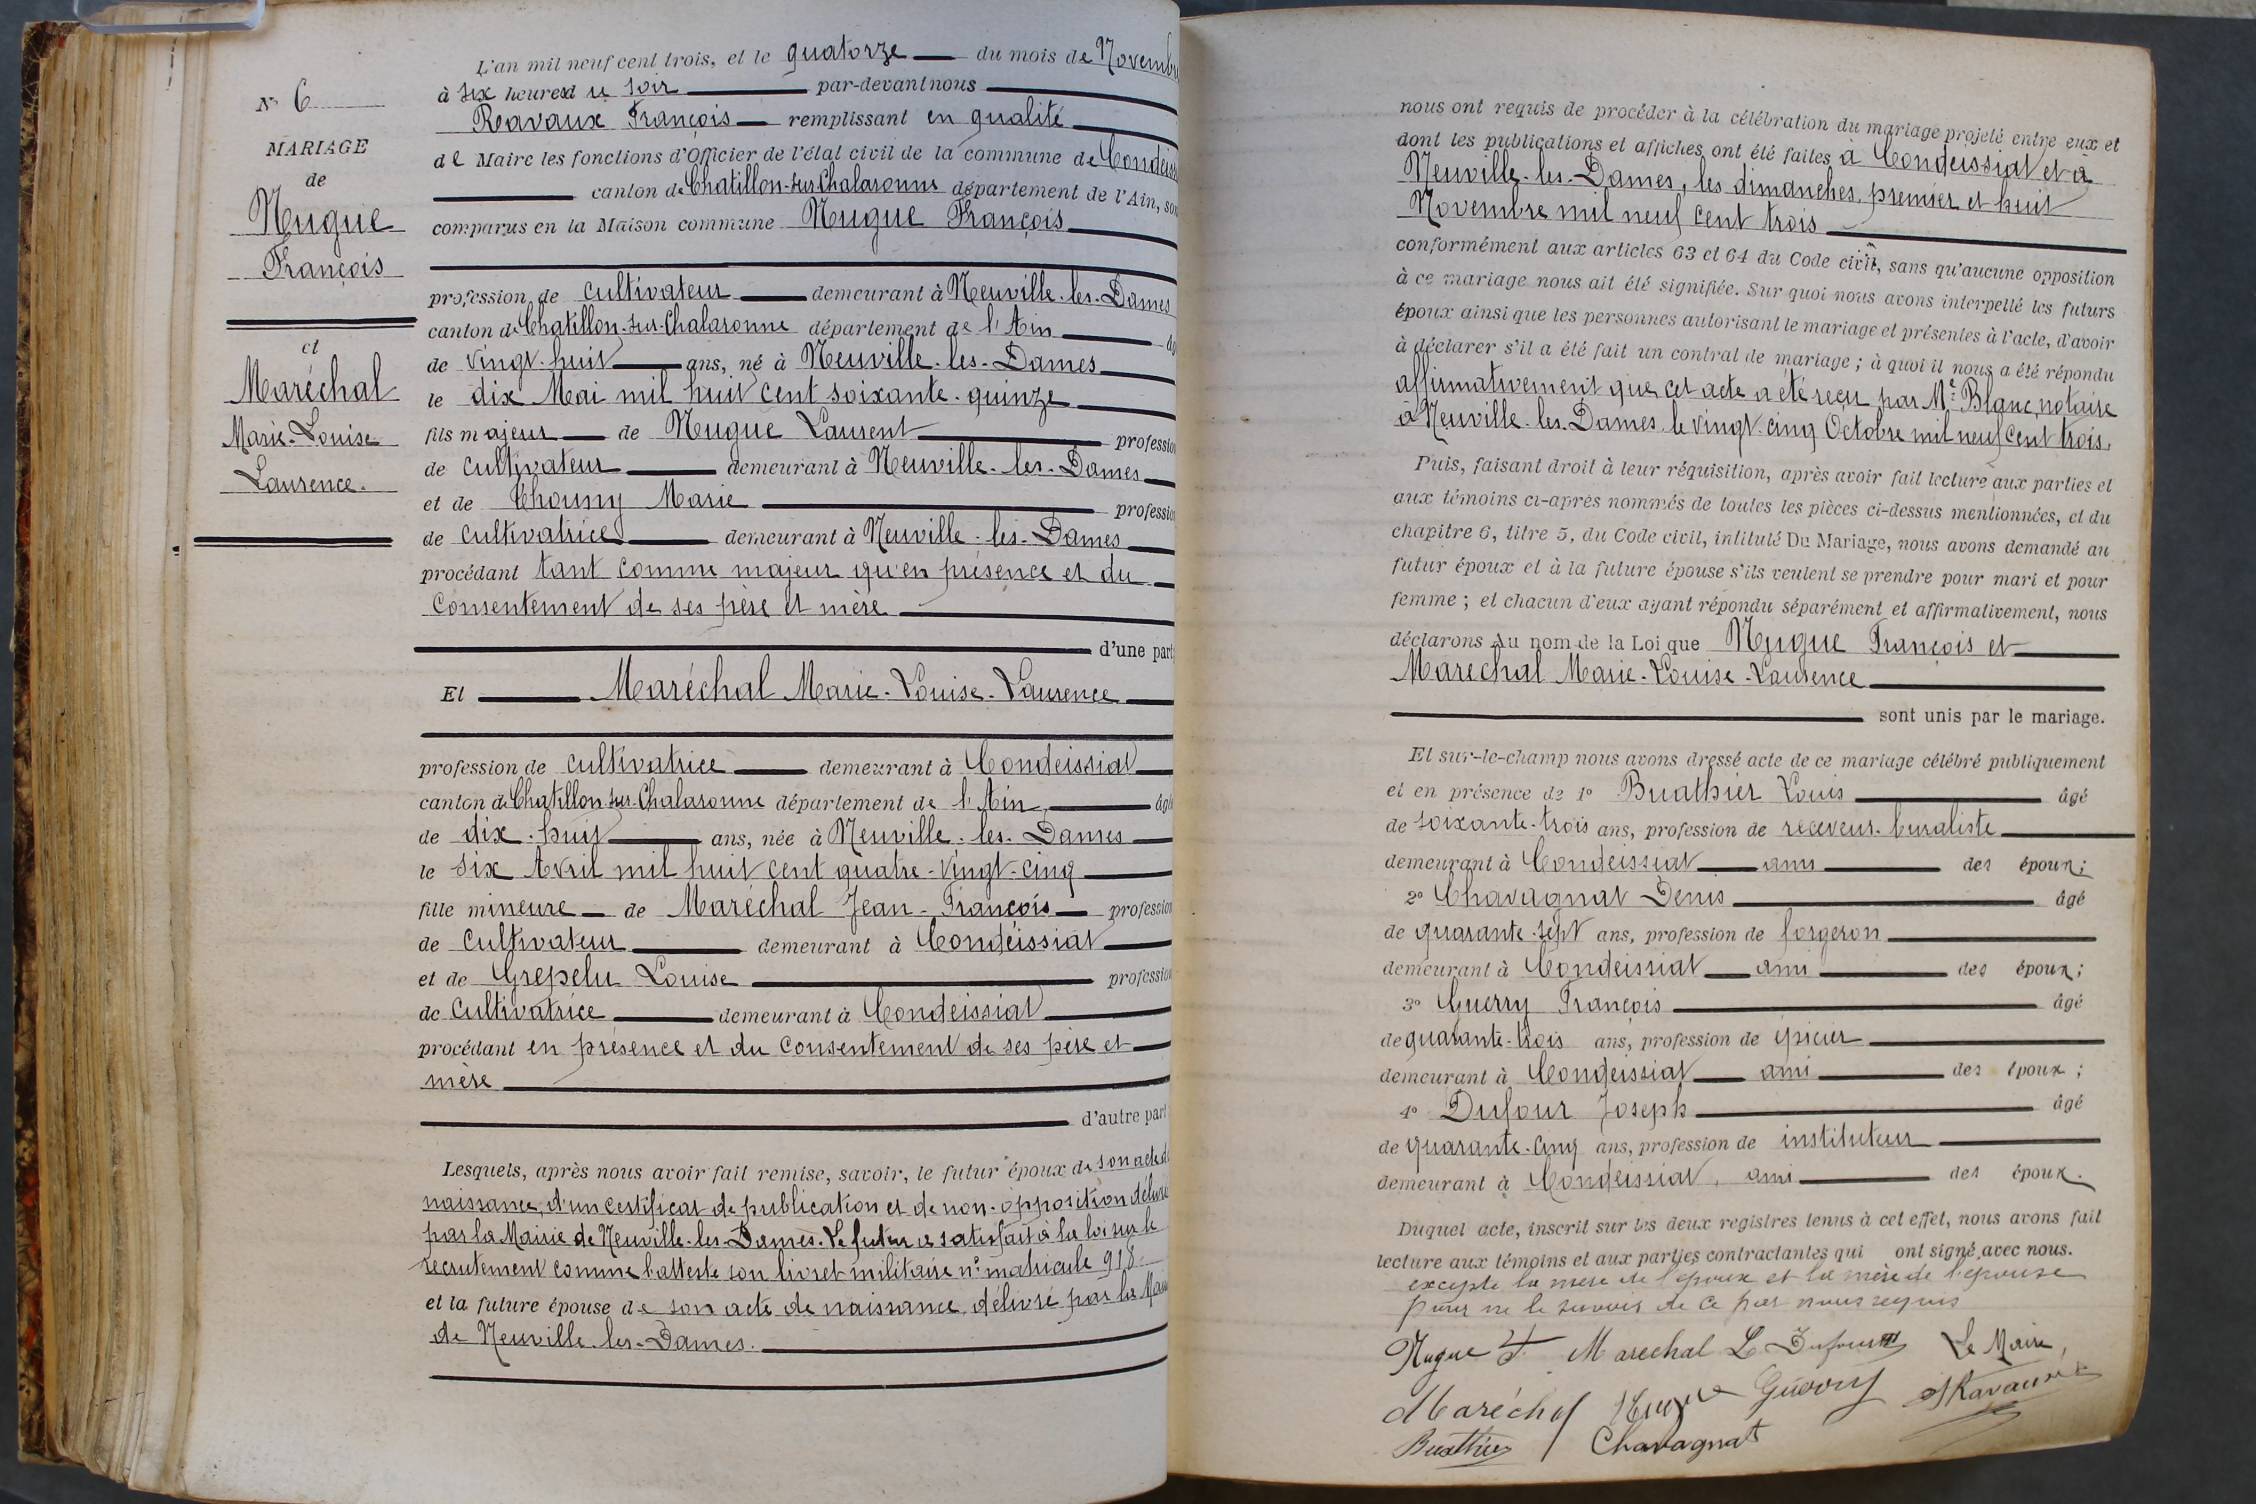 N° 6
MARIAGE
de
Nugue
François
et
Maréchal
Marie-Louise
Laurence.
L'an mil neuf cent trois, et le quatorze du mois de Novembre
à six heures du soir par-devant nous
Ravaux François remplissant en qualité
de Maire les fonctions d'Officier de l'état civil de la commune de Condeissiat
canton de Chatillon-sur-Chalaronne département de l'Ain, sont
comparus en la Maison commune Nugue François
profession de cultivateur demeurant à Neuville-les-Dames
canton de Chatillon-sur-Chalaronne département de l'Ain âgé
de vingt-huit ans, né à Neuville-les-Dames
le dix Mai mil huit cent soixante-quinze
fils majeur de Nugue Laurent profession
de cultivateur demeurant à Neuville-les-Dames
et de Chouny Marie profession
de cultivatrice demeurant à Neuville-les-Dames
procédant tant comme majeur qu'en présence et du
consentement de ses père et mère
d'une part
Et Maréchal Marie-Louise-Laurence
profession de cultivatrice demeurant à Condeissiat
canton de Chatillon-sur-Chalaronne département de l'Ain âgée
de dix-huit ans, née à Neuville-les-Dames
le six Avril mil huit cent quatre-vingt-cinq
fille mineure de Maréchal Jean-François profession
de cultivateur demeurant à Condeissiat
et de Grepelu Louise profession
de cultivatrice demeurant à Condeissiat
procédant en présence et du consentement de ses père et
mère
d'autre part
Lesquels, après nous avoir fait remise, savoir, le futur époux de son acte de
naissance, d'un certificat de publication et de non-opposition délivré
par la Mairie de Neuville-les-Dames. Le futur a satisfait à la loi sur le
recrutement comme l'atteste son livret militaire n° matricule 918
et la future épouse de son acte de naissance délivré par la Mairie
de Neuville-les-Dames.
nous ont requis de procéder à la célébration du mariage projeté entre eux et
dont les publications et affiches ont été faites à Condeissiat et à
Neuville-les-Dames, les dimanches premier et huit
Novembre mil neuf cent trois
conformément aux articles 63 et 64 du Code civil, sans qu'aucune opposition
à ce mariage nous ait été signifiée. Sur quoi nous avons interpellé les futurs
époux ainsi que les personnes autorisant le mariage et présentes à l'acte, d'avoir
à déclarer s'il a été fait un contrat de mariage ; à quoi il nous a été répondu
affirmativement que cet acte a été reçu par Me Blanc, notaire
à Neuville-les-Dames le vingt-cinq Octobre mil neuf cent trois.
Puis, faisant droit à leur réquisition, après avoir fait lecture aux parties et
aux témoins ci-après nommés de toutes les pièces ci-dessus mentionnées, et du
chapitre 6, titre 5, du Code civil, intitulé Du Mariage, nous avons demandé au
futur époux et à la future épouse s'ils veulent se prendre pour mari et pour
femme ; et chacun d'eux ayant répondu séparément et affirmativement, nous
déclarons Au nom de la Loi que Nugue François et
Maréchal Marie-Louise-Laurence
sont unis par le mariage.
Et sur-le-champ nous avons dressé acte de ce mariage célébré publiquement
et en présence de 1° Buathier Louis âgé
de soixante-trois ans, profession de receveur-buraliste
demeurant à Condeissiat ami des époux ;
2° Chavagnat Denis âgé
de quarante-sept ans, profession de forgeron
demeurant à Condeissiat ami des époux ;
3° Guerry François âgé
de quarante-trois ans, profession de épicier
demeurant à Condeissiat ami des époux ;
4° Dufour Joseph âgé
de quarante-cinq ans, profession de instituteur
demeurant à Condeissiat, ami des époux.
Duquel acte, inscrit sur les deux registres tenus à cet effet, nous avons fait
lecture aux témoins et aux parties contractantes qui ont signé avec nous.
excepté la mère de l'époux et la mère de l'épouse
pour ne le savoir de ce par nous requis
Nugue F Marechal L Dufour Le Maire,
Maréchal Nugue Guerry Ravaux
Buathier Chavagnat